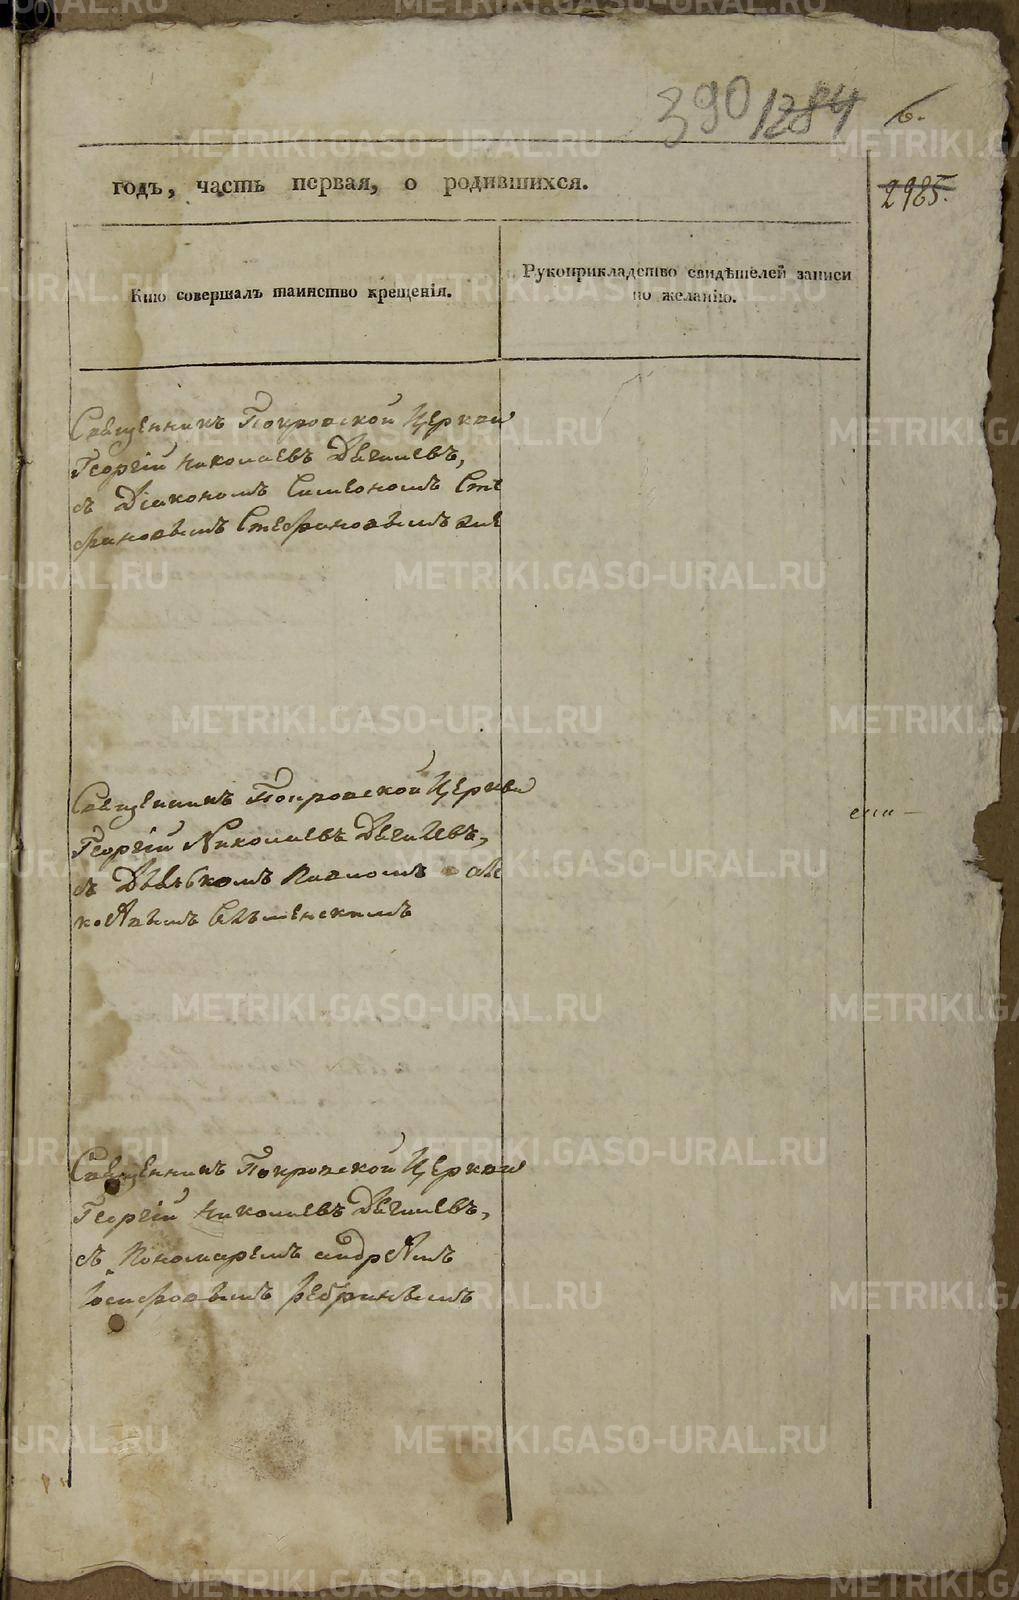 390 1284 6.
годъ, часть первая, о родившихся.
2985.
Кто совершалъ таинство крещенія.
Рукоприкладство свидѣтелей записи
по желанію.
Священникъ Покровской Церкви
Георгій Николаевъ
съ Діакономъ Симеономъ Сте
фановымъ Стефановымъ же
Священникъ Покровской Церкви
Георгій Николаевъ
съ Дьячкомъ
Священникъ Покровской Церкви
Георгій Николаевъ
съ Пономаремъ андреемъ
Іосифовымъ
METRIKI.GASO-URAL.RU